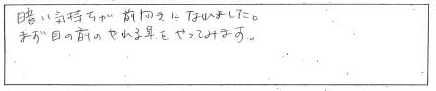 暗い気持ちが前向きになれました。
まず目の前のやれる事をやってみます。